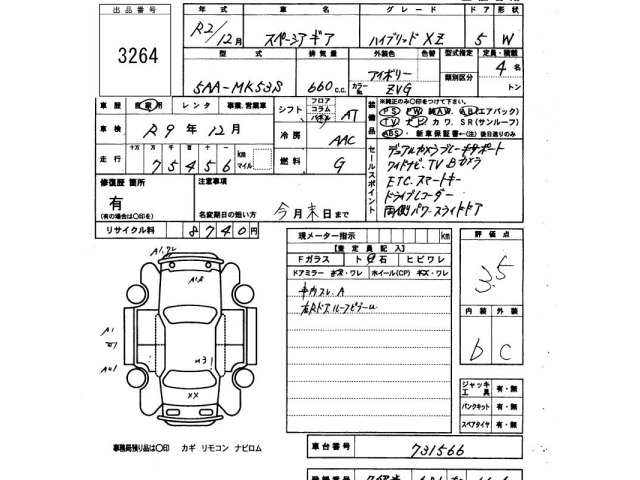 出品番号 年式 車名 グレード ドア 形状
3264 R2/12月 スペーシアギア ハイブリッド XZ 5 W
型式 排気量 外装色 色替 型式指定 定員・積載
5AA-MK53S 660 c.c. アイボリー カラーNo. ZVG 類別区分 4名 トン
車歴 自家用 レンタ 事業、営業車 シフト フロア コラム パネル AT
装備品 ※純正のみ〇印をつけて下さい。
PS PW 純AW. AB(エアバック)
TV ナビ カワ. SR(サンルーフ)
ABS 新車保証書 ←(注)後日送りのみ
車検 R9年12月 冷房 AAC
走行 十万 万 千 百 十 一 km マイル
75456 燃料 G
セールスポイント デュアルカメラブレーキサポート
ワイドナビ.TV Bカメラ
ETC.スマートキー
ドライブレコーダー
両側パワースライドドア
修復歴 箇所 注意事項
有
(有の場合は〇印を) 名変期日の短い方 今月末日まで
リサイクル料 8740円
現メーター指示 km
【査定員記入】
Fガラス ト 石 ヒビワレ
ドアミラー キズ・ワレ ホイール(CP) キズ・ワレ
車内スレ.A
評価点
3.5
内装 外装
b C
A1,ワレ
A1
XX
ジャッキ工具 有・無
パンクキット 有・無
スペアタイヤ 有・無
事務局預り品は〇印 カギ リモコン ナビロム
車台番号 731566